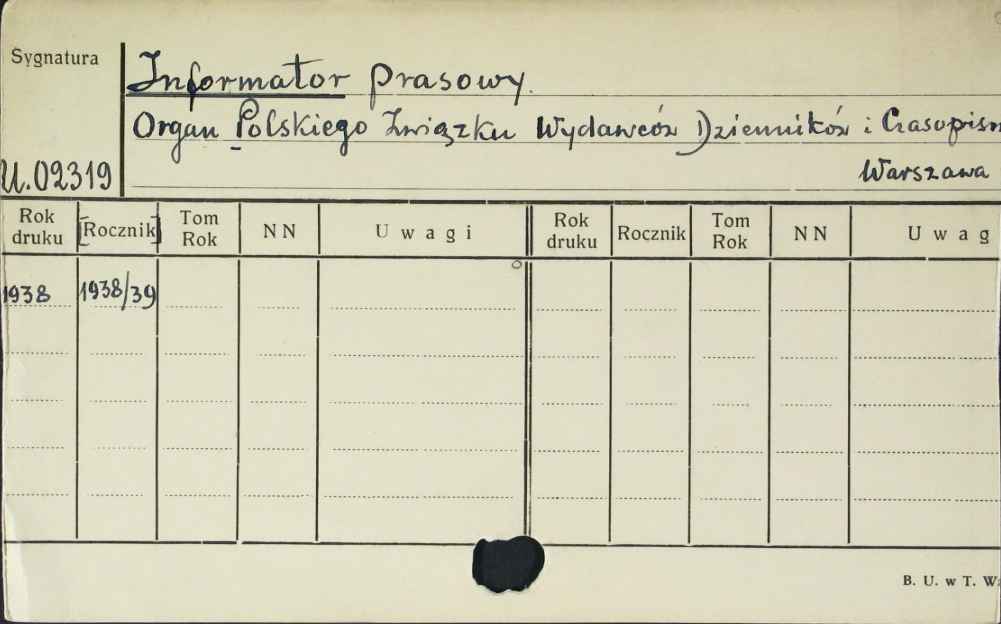 Sygnatura
Informator prasowy.
Organ Polskiego Związku Wydawców Dzienników i Czasopism
U.02319
Warszawa
Rok druku [Rocznik] Tom Rok NN Uwagi Rok druku Rocznik Tom Rok NN Uwag
1938 1938/39
B. U. w T. W